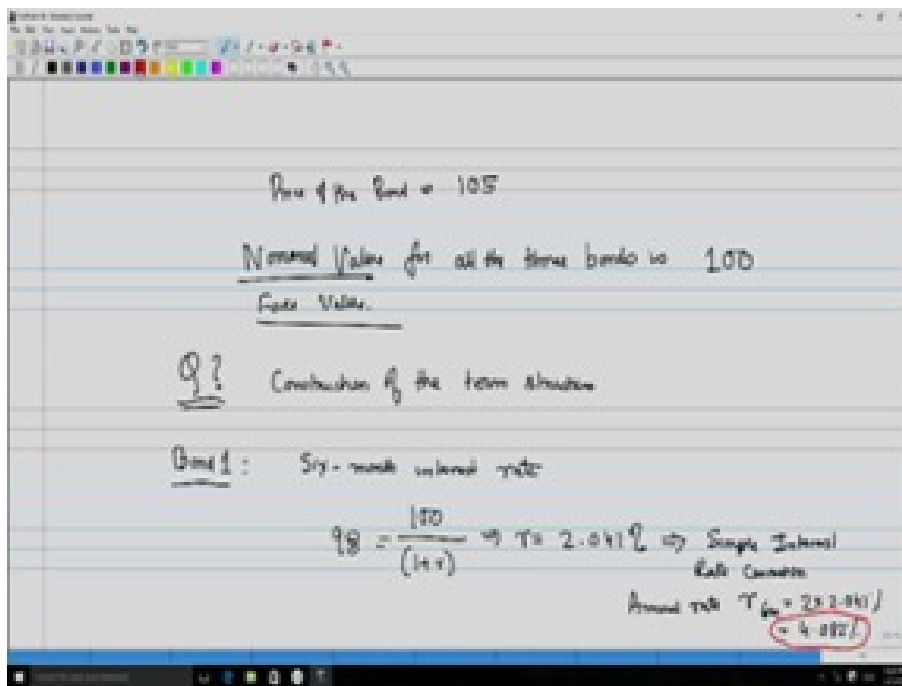 Price of the Bond = 105
Nominal Value for all the three bonds is 100
Face Value.
Q? Construction of the term structure
Bond 1: Six-month interest rate
98 = 100 / (1+r) ⇒ r = 2.041% ⇒ Simple Interest
Rate Convention
Annual rate r6m = 2×2.041%
= 4.082%